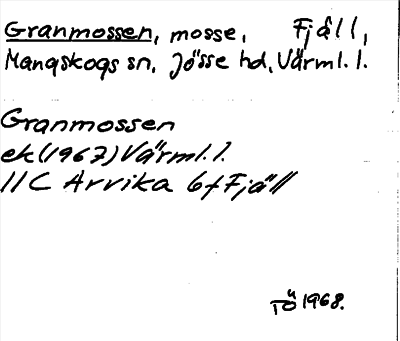 Granmossen, mosse, Fjäll,
Mangskogs sn, Jösse hd, Värml. l.
Granmossen
ek (1967) Värml. l.
11 C Arvika 6f Fjäll
TÖ 1968.